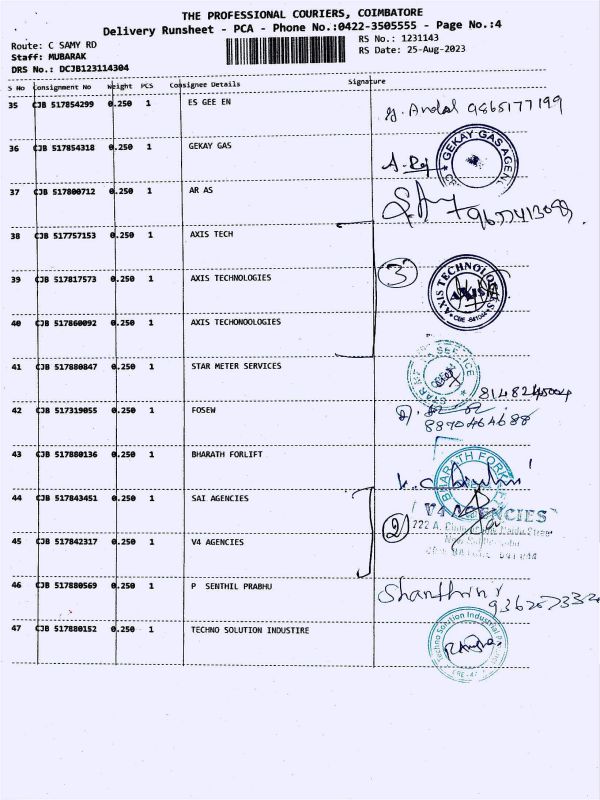 THE PROFESSIONAL COURIERS, COIMBATORE
Delivery Runsheet - PCA - Phone No.:0422-3505555 - Page No.:4
Route: C SAMY RD
RS No.: 1231143
Staff: MUBARAK
RS Date: 25-Aug-2023
DRS No.: DCJB123114304
S No Consignment No Weight PCS Consignee Details Signature
35 CJB 517854299 0.250 1 ES GEE EN
9865177199
36 CJB 517854318 0.250 1 GEKAY GAS
GEKAY GAS
37 CJB 517800712 0.250 1 AR AS
38 CJB 517757153 0.250 1 AXIS TECH
39 CJB 517817573 0.250 1 AXIS TECHNOLOGIES
3
AXIS TECHNOLOGIES
AXIS
40 CJB 517860092 0.250 1 AXIS TECHONOOLOGIES
41 CJB 517880847 0.250 1 STAR METER SERVICES
42 CJB 517319055 0.250 1 FOSEW
8890464688
43 CJB 517880136 0.250 1 BHARATH FORLIFT
BHARATH
44 CJB 517843451 0.250 1 SAI AGENCIES
V4 AGENCIES
2
45 CJB 517842317 0.250 1 V4 AGENCIES
46 CJB 517880569 0.250 1 P SENTHIL PRABHU
47 CJB 517880152 0.250 1 TECHNO SOLUTION INDUSTIRE
Techno Solution Industrial